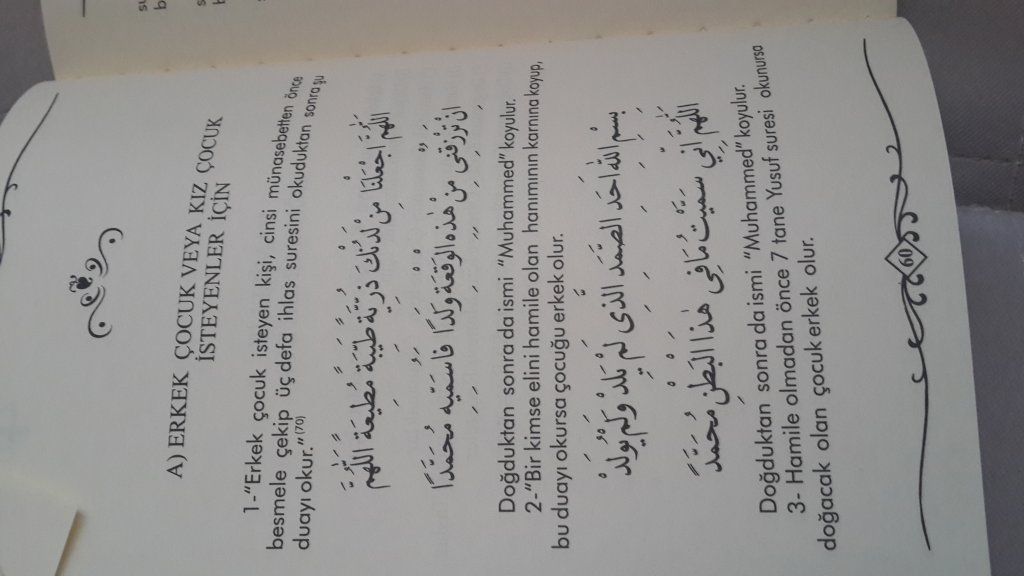 A) ERKEK ÇOCUK VEYA KIZ ÇOCUK
İSTEYENLER İÇİN
1-"Erkek çocuk isteyen kişi, cinsi münasebetten önce
besmele çekip üç defa ihlas suresini okuduktan sonra şu
duayı okur."(70)
اَللّٰهُمَّ اجْعَلْنَا مِنْ لَدُنْكَ ذُرِّيَّةً طَيِّبَةً مُطِيعَةً اَللّٰهُمَّ
اِنْ تَرْزُقْنِى مِنْ هٰذِهِ الْوَقْعَةِ وَلَدًا فَاُسَمِّيهِ مُحَمَّدًا
Doğduktan sonra da ismi "Muhammed" koyulur.
2-"Bir kimse elini hamile olan hanımının karnına koyup,
bu duayı okursa çocuğu erkek olur.
بِسْمِ اللّٰهِ اَحَدِ الصَّمَدِ الَّذِى لَمْ يَلِدْ وَلَمْ يُولَدْ
اَللّٰهُمَّ اِنِّي سَمَّيْتُ مَا فِى هٰذَا الْبَطْنِ مُحَمَّدً
Doğduktan sonra da ismi "Muhammed" koyulur.
3- Hamile olmadan önce 7 tane Yusuf suresi okunursa
doğacak olan çocuk erkek olur.
60